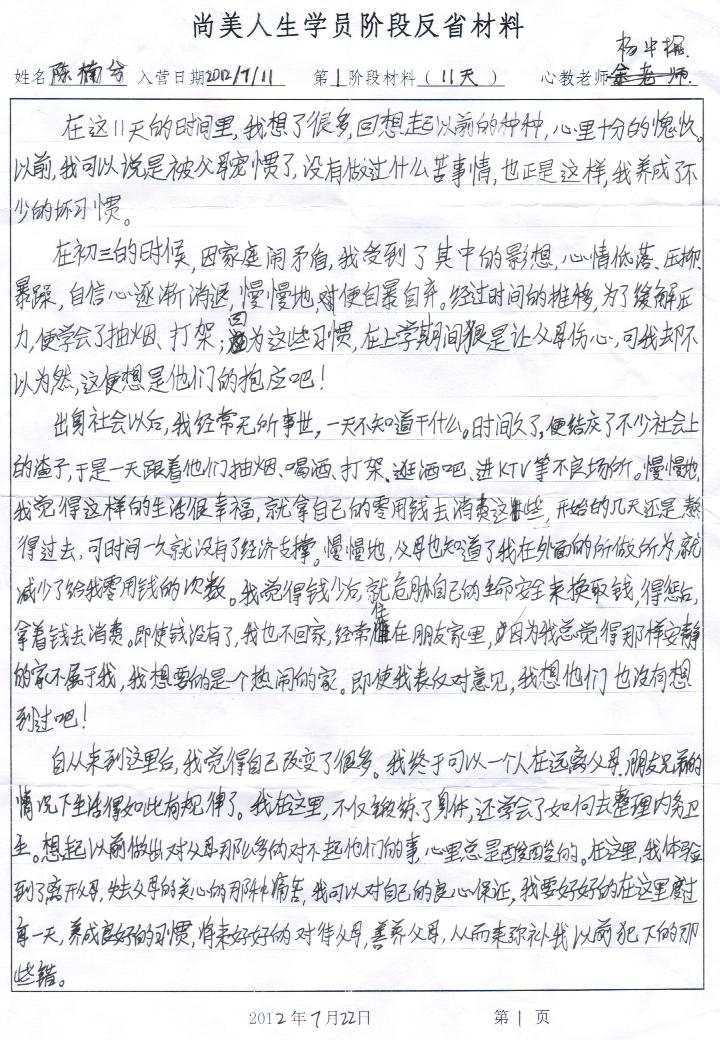 尚美人生学员阶段反省材料
姓名 陈楠兮 入营日期2012/7/11 第1阶段材料（11天） 心教老师金老师.
在这11天的时间里,我想了很多,回想起以前的种种,心里十分的愧疚。
以前,我可以说是被父母宠惯了,没有做过什么苦事情,也正是这样,我养成了不
少的坏习惯。
在初三的时候,因家庭闹矛盾,我受到了其中的影想,心情低落、压抑、
暴躁,自信心逐渐消退,慢慢地,便自暴自弃。经过时间的推移,为了缓解压
力,便学会了抽烟、打架;因为这些习惯,在上学期间狠是让父母伤心,可我却不
以为然,这便想是他们的抱应吧!
出身社会以后,我经常无所事世,一天不知道干什么。时间久了,便结交了不少社会上
的渣子,于是一天跟着他们抽烟、喝酒、打架、逛酒吧、进KTV等不良场所。慢慢地,
我觉得这样的生活很幸福,就拿自己的零用钱去消费这些,开始的几天还是熬
得过去,可时间一久就没有了经济支撑。慢慢地,父母也知道了我在外面的所做所为,就
减少了给我零用钱的次数。我觉得钱少后,就危胁自己的生命安全来换取钱,得惩后,
拿着钱去消费。即使钱没有了,我也不回家,经常住在朋友家里,因为我总觉得那样安静
的家不属于我,我想要的是个热闹的家。即使我表反对意见,我想他们也没有想
到过吧!
自从来到这里后,我觉得自己改变了很多。我终于可以一个人在远离父母、朋友兄弟的
情况下生活得如此有规律了。我在这里,不仅锻练了身体,还学会了如何去整理内务卫
生。想起以前做出对父母那么多的对不起他们的事,心里总是酸酸的。在这里,我体验
到了离开父母,失去父母的关心的那种痛苦,我可以对自己的良心保证,我要好好的在这里度过
每一天,养成良好的习惯,将来好好的对待父母,善养父母,从而来弥补我以前犯下的那
些错。
2012年7月22日 第1页